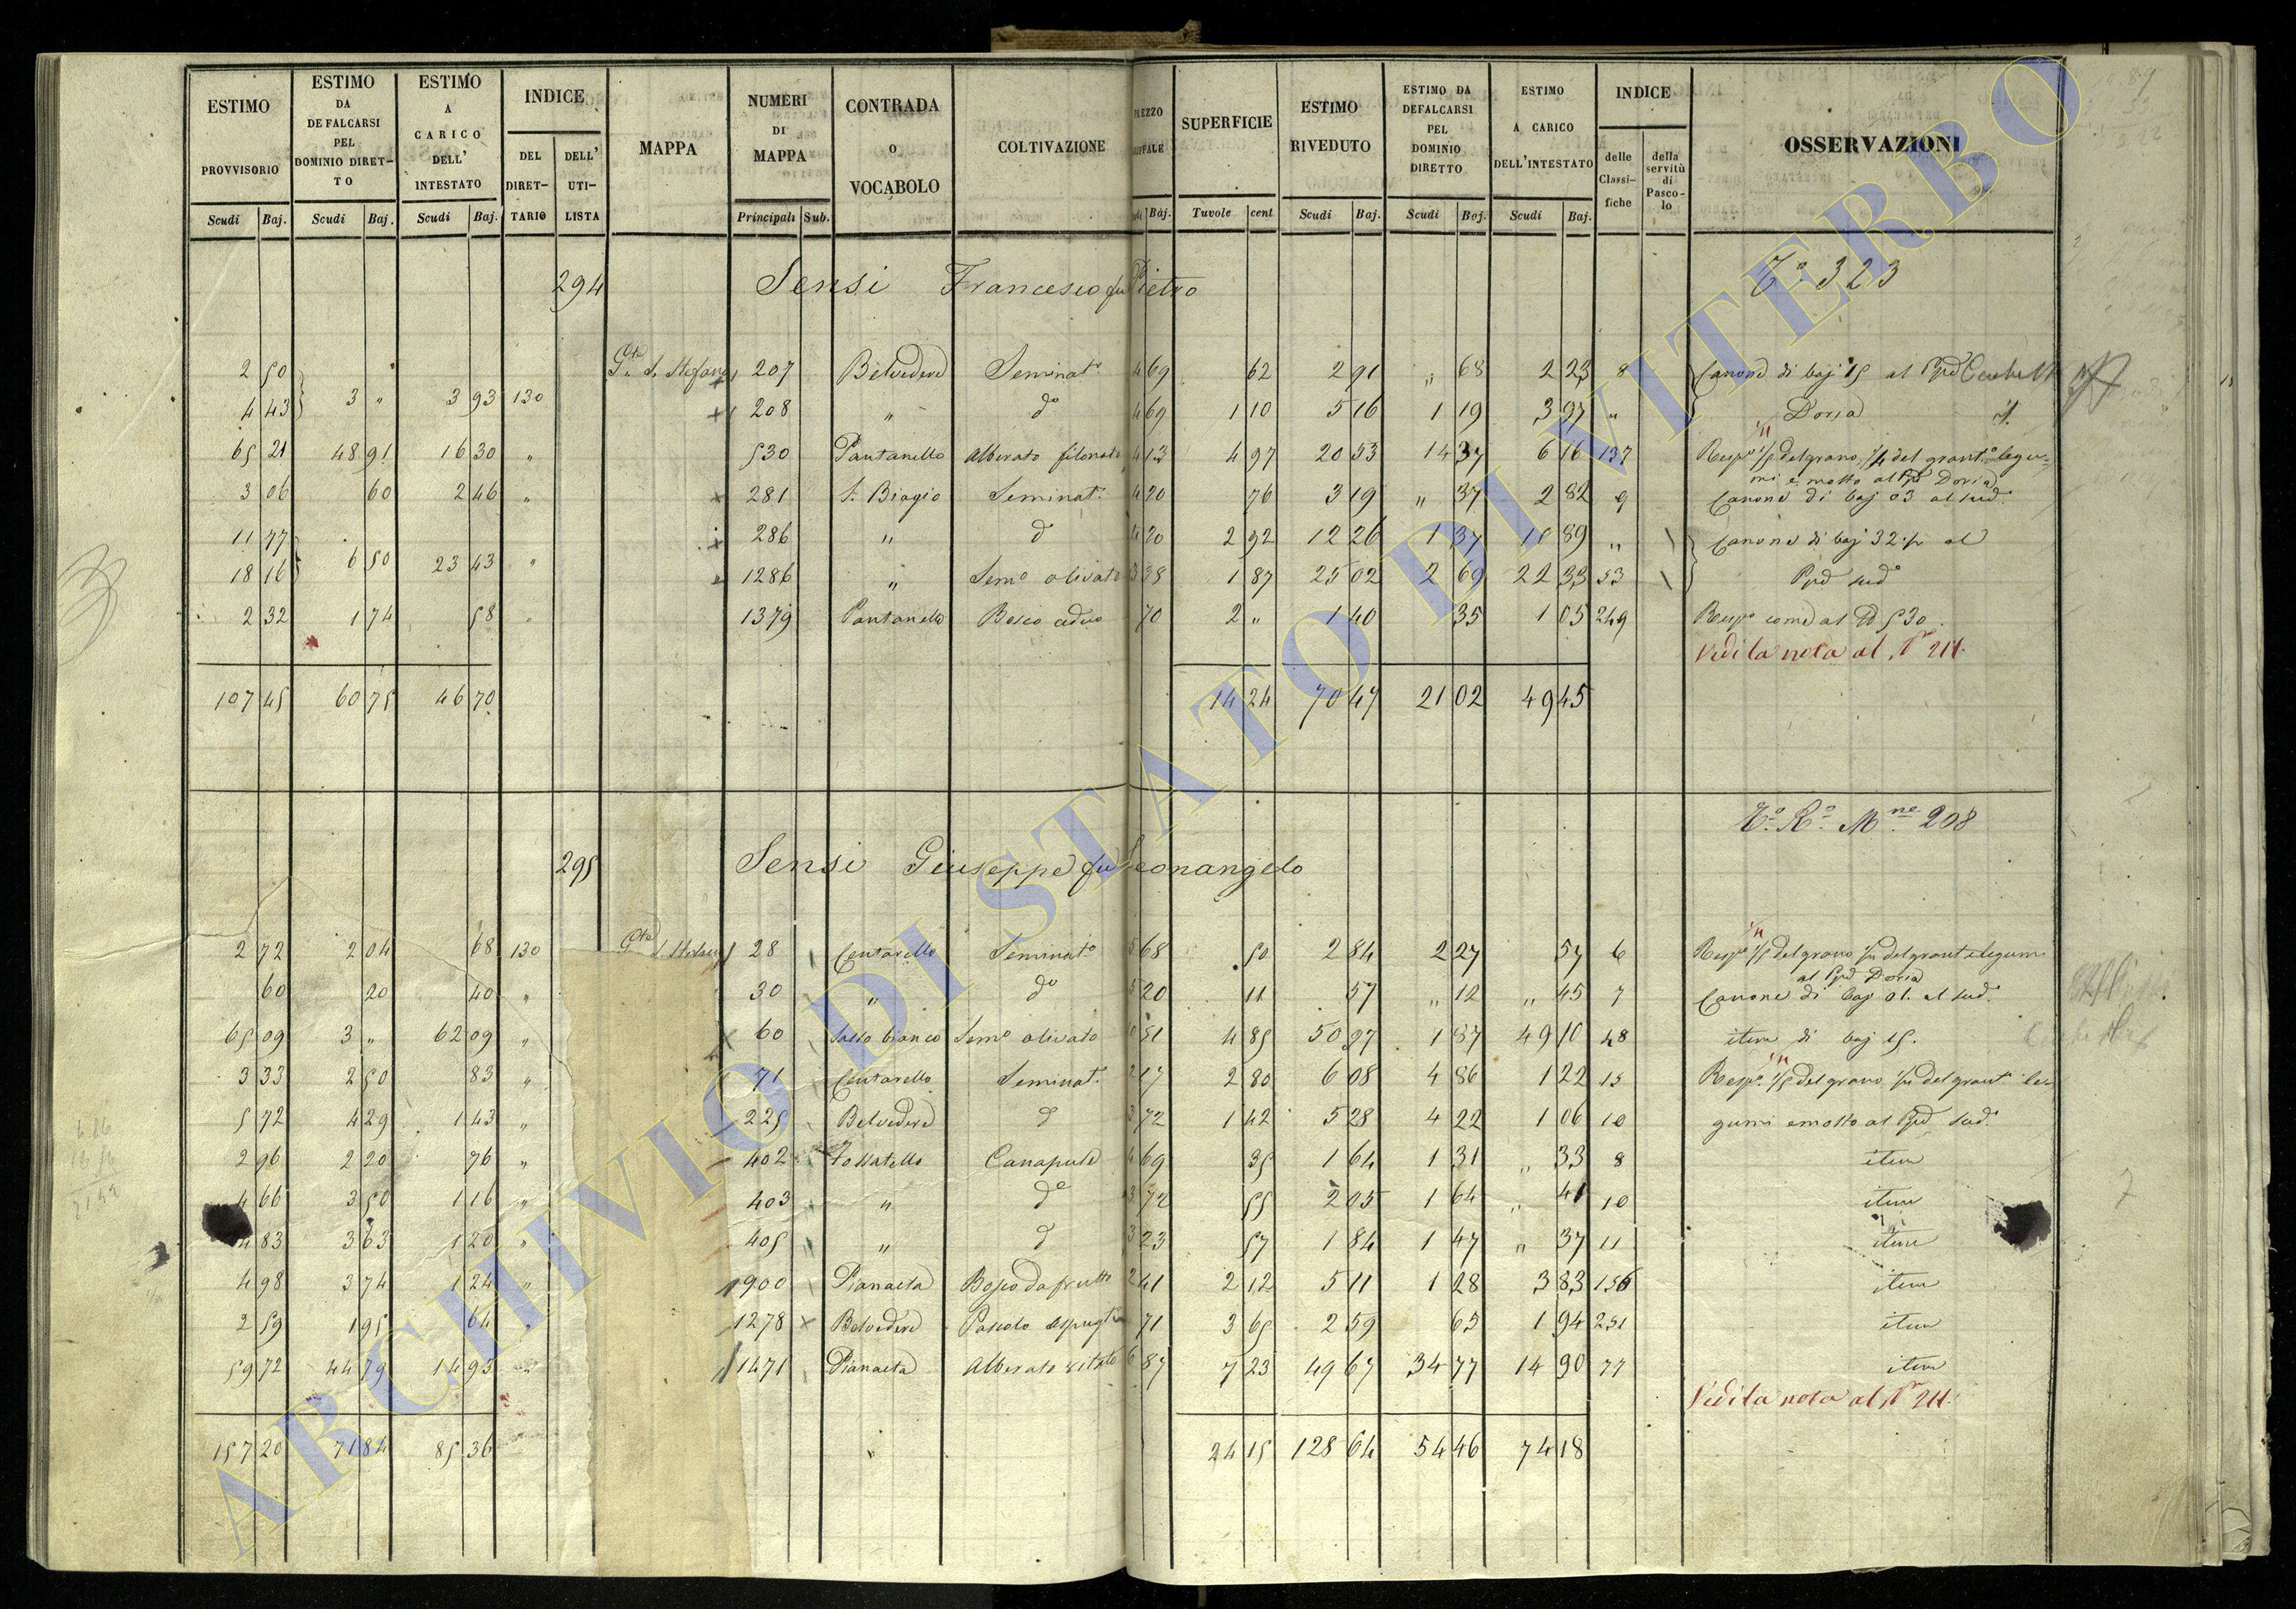 ESTIMO PROVVISORIO Scudi Baj.
ESTIMO DA DEFALCARSI PEL DOMINIO DIRETTO Scudi Baj.
ESTIMO A CARICO DELL' INTESTATO Scudi Baj.
INDICE DEL DIRETTARIO DELL' UTILISTA
MAPPA
NUMERI DI MAPPA Principali Sub.
CONTRADA O VOCABOLO
COLTIVAZIONE
Baj.
SUPERFICIE Tavole cent
ESTIMO RIVEDUTO Scudi Baj.
ESTIMO DA DEFALCARSI PEL DOMINIO DIRETTO Scudi Baj.
ESTIMO A CARICO DELL'INTESTATO Scudi Baj.
INDICE delle Classifiche della servitù di Pascolo
OSSERVAZIONI
294 Sensi Francesco fu Pietro T.o 323
2 50 Gta S. Stefano 207 Belvedere Seminato 4 69 62 2 91 " 68 2 23 8 Canone di baj 15 al Ppe
4 43 3 " 3 93 130 208 " do 4 69 1 10 5 16 1 19 3 97 " Doria
65 21 48 91 16 30 " 530 Pantanello Alberato filonato 4 13 4 97 20 53 14 37 6 16 137 Rispa 1/5 del grano, 1/4 del granto legumi e mosto al Ppe Doria
3 06 60 2 46 " 281 S. Biagio Seminato 4 20 76 3 19 " 37 2 82 9 Canone di baj 03 al sudo
11 77 286 " do 4 20 2 92 12 26 1 37 10 89 " Canone di baj 32 1/2 al
18 16 6 50 23 43 " 1286 " Semo olivato 1 87 25 02 2 69 22 33 53 Ppe sudo
2 32 1 74 58 " 1379 Pantanello Bosco ceduo 70 2 " 1 40 35 1 05 249 Rispa come al No 530
Vedi la nota al No 211.
107 45 60 75 46 70 14 24 70 47 21 02 49 45
T.o R.o Mne 208
295 Sensi Giuseppe fu Leonangelo
2 72 2 04 68 130 Gta S. Stefano 28 Centarello Seminato 5 68 50 2 84 2 27 57 6 Rispa 1/5 del grano 1/4 del granto e legumi al Ppe Doria
60 20 40 " 30 " do 5 20 11 57 " 12 " 45 7 Canone di baj 01. al sudo
65 09 3 " 62 09 " 60 Sasso bianco Semo olivato 51 4 85 50 97 1 87 49 10 48 item di baj 15.
3 33 2 50 83 " 71 Centarello Seminato 2 17 2 80 6 08 4 86 1 22 15 Rispa 1/5 del grano 1/4 del granto le
5 72 4 29 1 43 " 225 Belvedere do 3 72 1 42 5 28 4 22 1 06 10 gumi e mosto al Ppe sudo
2 96 2 20 76 " 402 Fossatello Canapule 4 69 35 1 64 1 31 " 33 8 item
4 66 3 50 1 16 " 403 " do 3 72 55 2 05 1 64 " 41 10 item
4 83 3 63 1 20 " 405 " do 3 23 57 1 84 1 47 " 37 11 item
4 98 3 74 1 24 " 900 Pianaeta Bosco da frutto 2 41 2 12 5 11 1 28 3 83 156 item
2 59 1 95 64 " 1278 Belvedere Pascolo cespugto 71 3 65 2 59 65 1 94 251 item
59 72 44 79 14 93 " 1471 Pianaeta Alberato vitato 6 87 7 23 49 67 34 77 14 90 77 item
Vedi la nota al No 211.
157 20 71 84 85 36 24 15 128 64 54 46 74 18
ARCHIVIO DI STATO DI VITERBO